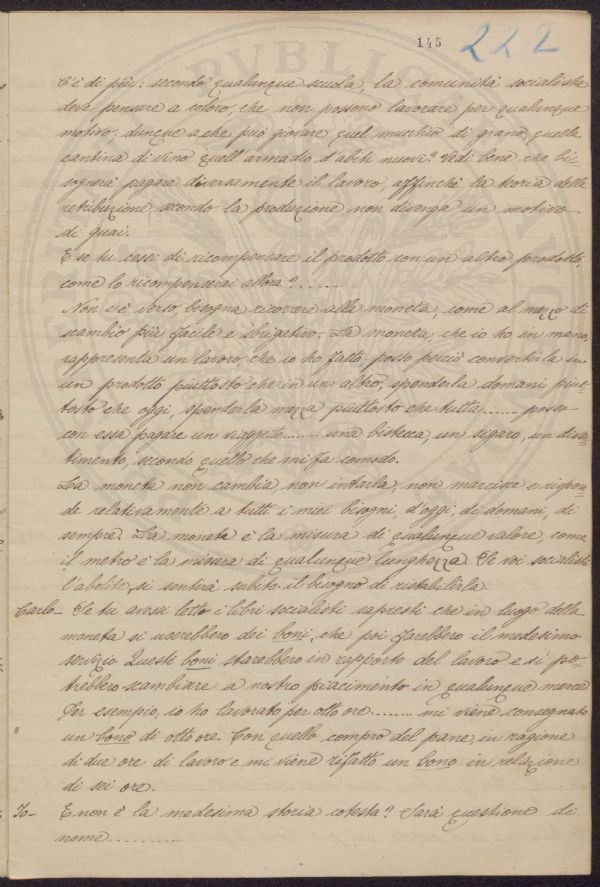 145 222
C'è di più: secondo qualunque scuola, la comunità socialista
deve pensare a coloro, che non possono lavorare per qualunque
motivo; dunque a che può giovare quel mucchio di grano, quella
cantina di vino quell'armadio d'abiti nuovi? Vedi bene che bi-
sognerà pagare diversamente il lavoro, affinchè la teoria della
retribuzione secondo la produzione non divenga un motivo
di guai.
E se tu cessi di ricompensare il prodotto con un altro prodotto,
come lo ricompenserai allora?........
Non v'è verso, bisogna ricorrere alla moneta, come al mezzo di
scambio più facile e sbrigativo. La moneta, che io ho in mano,
rappresenta un lavoro, che io ho fatto: posso perciò convertirla in
un prodotto piuttosto che in un altro, spenderla domani piut-
tosto che oggi, spenderla mezza piuttosto che tutta....... posso
con essa pagare un viaggetto........ una bistecca, un sigaro, un diver-
timento, secondo quello che mi fa comodo.
La moneta non cambia, non intarla, non marcisce e rispon-
de relativamente a tutti i miei bisogni, d'oggi, di domani, di
sempre. La moneta è la misura di qualunque valore, come
il metro è la misura di qualunque lunghezza. Se voi socialisti
l'abolite, si sentirà subito il bisogno di ristabilirla.
Carlo- Se tu avessi letto i libri socialisti sapresti che in luogo della
moneta si userebbero dei boni, che poi farebbero il medesimo
servizio. Questi boni starebbero in rapporto del lavoro e si po-
trebbero scambiare a nostro piacimento in qualunque merce
Per esempio, io ho lavorato per otto ore........ mi viene consegnato
un bono di otto ore. Con quello compro del pane, in ragione
di due ore di lavoro e mi viene rifatto un bono in relazione
di sei ore.
Io- E non è la medesima storia cotesta? Sarà questione di
nome...........